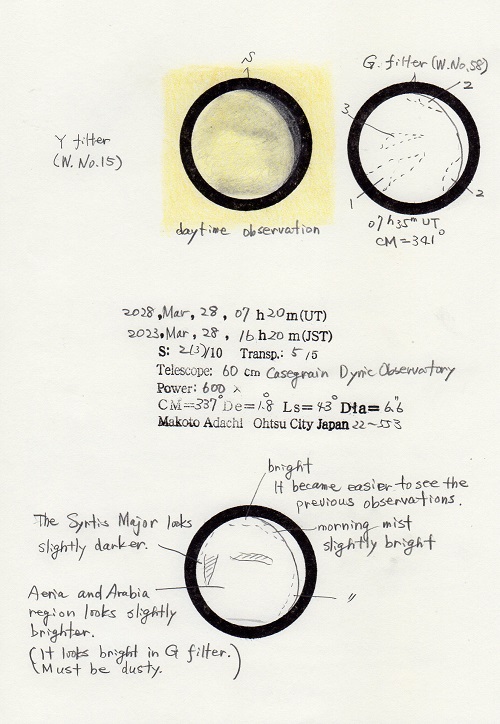 S
Y filter
(W. No.15)
G. filter (W.No.58)
2
3
1
2
07h35m UT
CM=341°
daytime observation
2028, Mar, 28, 07 h 20 m (UT)
2023, Mar, 28, 16 h 20 m (JST)
S: 2(3)/10 Transp.: 5/5
Telescope: 60 cm Casegrain Dynic Observatory
Power: 600 x
CM=337° De=1.8° Ls=43° Dia=6.6"
Makoto Adachi Ohtsu City Japan 22~
bright
It became easier to see the
previous observations.
The Syrtis Major looks
slightly darker.
morning mist
slightly bright
Aeria and Arabia
region looks slightly
brighter.
(It looks bright in G filter.)
(Must be dusty.)
〃